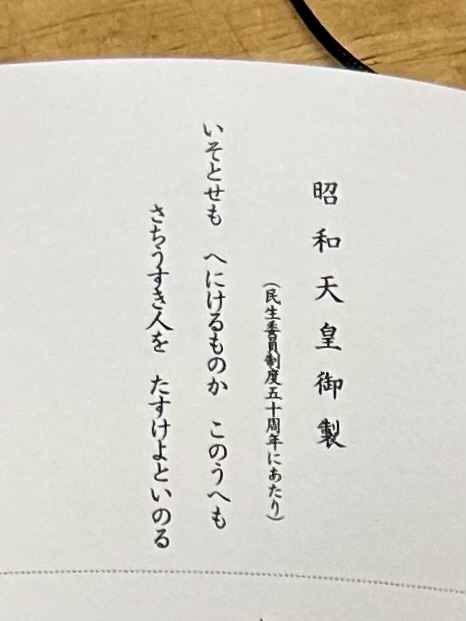 昭和天皇御製
(民生委員制度五十周年にあたり)
いそとせも　へにけるものか　このうへも
さちうすき人を　たすけよといのる